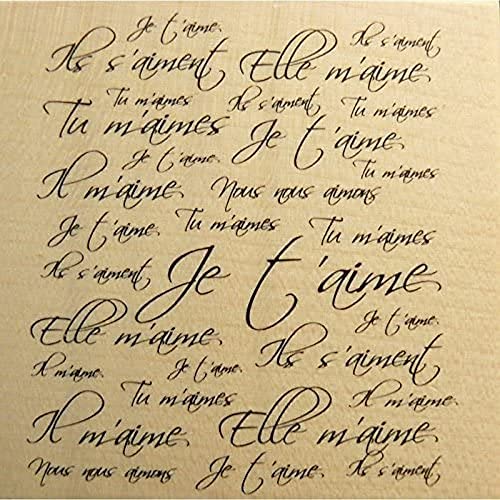 Je t'aime.
Ils s'aiment
Ils s'aiment Elle m'aime.
Tu m'aimes Ils s'aiment. Tu m'aimes
Tu m'aimes Je t'aime.
Je t'aime. Tu m'aimes
Il m'aime. Nous nous aimons
Je t'aime. Tu m'aimes Tu m'aimes
Ils s'aiment Je t'aime.
Je t'aime.
Elle m'aime. Ils s'aiment
Il m'aime. Je t'aime.
Tu m'aimes Il m'aime.
Il m'aime. Elle m'aime.
Nous nous aimons Je t'aime. Ils s'aiment